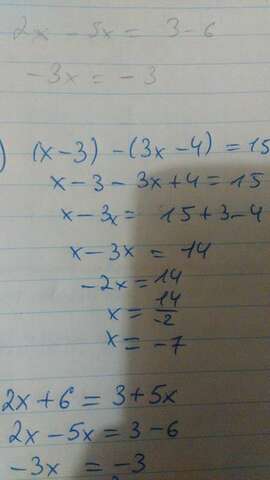 2x - 5x = 3 - 6
-3x = -3
) (x-3) - (3x-4) = 15
x - 3 - 3x + 4 = 15
x - 3x = 15 + 3 - 4
x - 3x = 14
-2x = 14
x = 14/-2
x = -7
2x + 6 = 3 + 5x
2x - 5x = 3 - 6
-3x = -3